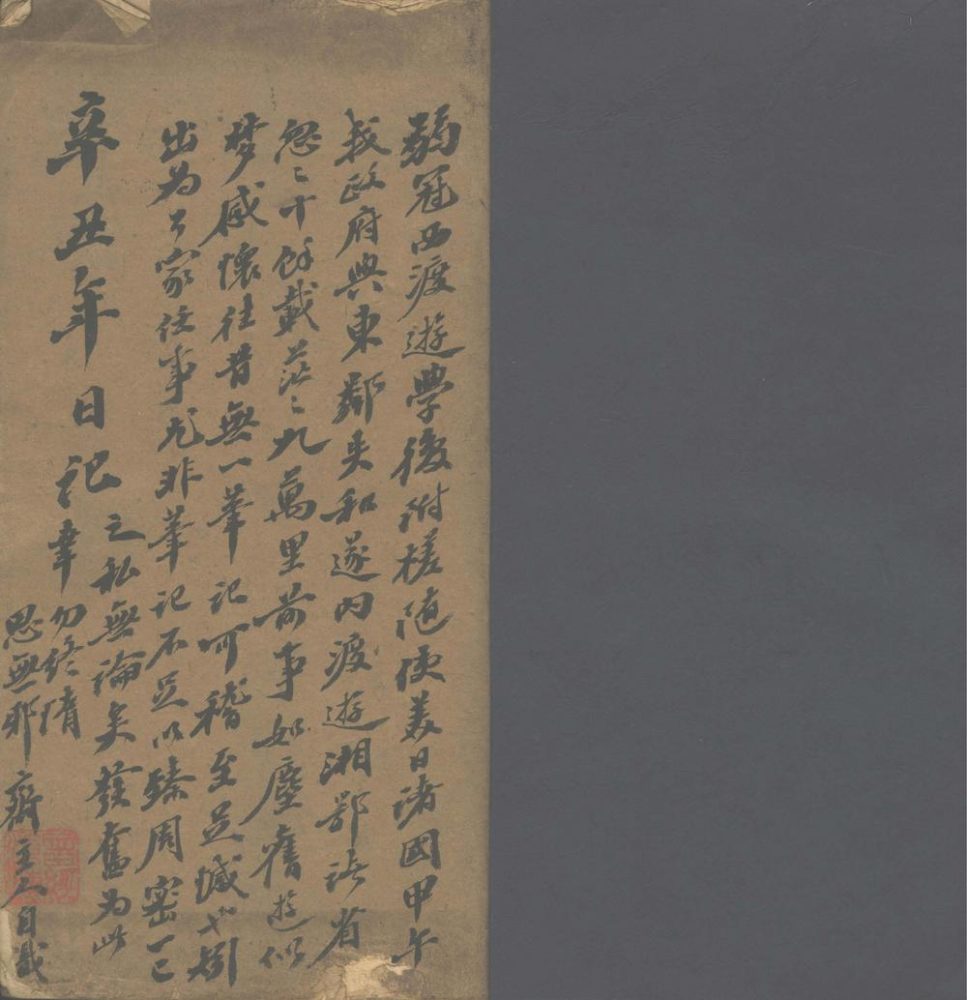 弱冠西渡遊學後附槎随使美日諸國甲午
我政府與東鄰失和遂内渡遊湘鄂諸省
忽〻十餘載茫〻九萬里前事如塵舊遊似
梦感懷往昔無一筆記可稽至足憾也
出為公家任事尤非筆記不足以臻周密一己
之私無論矣發奮為此
辛丑年日記幸勿終隋
思無邪齋主人自識